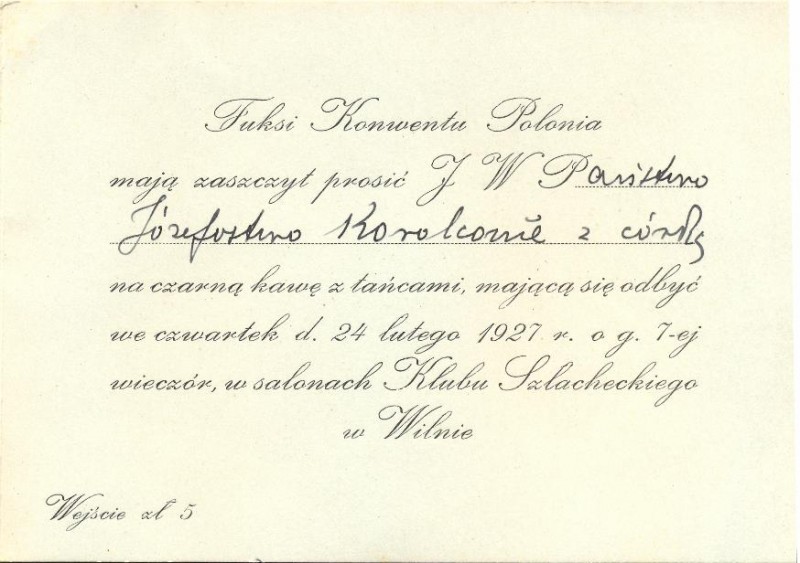 Fuksi Konwentu Polonia
mają zaszczyt prosić J W Państwo
Józefostwo Korolcowie z córką
na czarną kawę z tańcami, mającą się odbyć
we czwartek d. 24 lutego 1927 r. o g. 7-ej
wieczór, w salonach Klubu Szlacheckiego
w Wilnie
Wejście zł 5